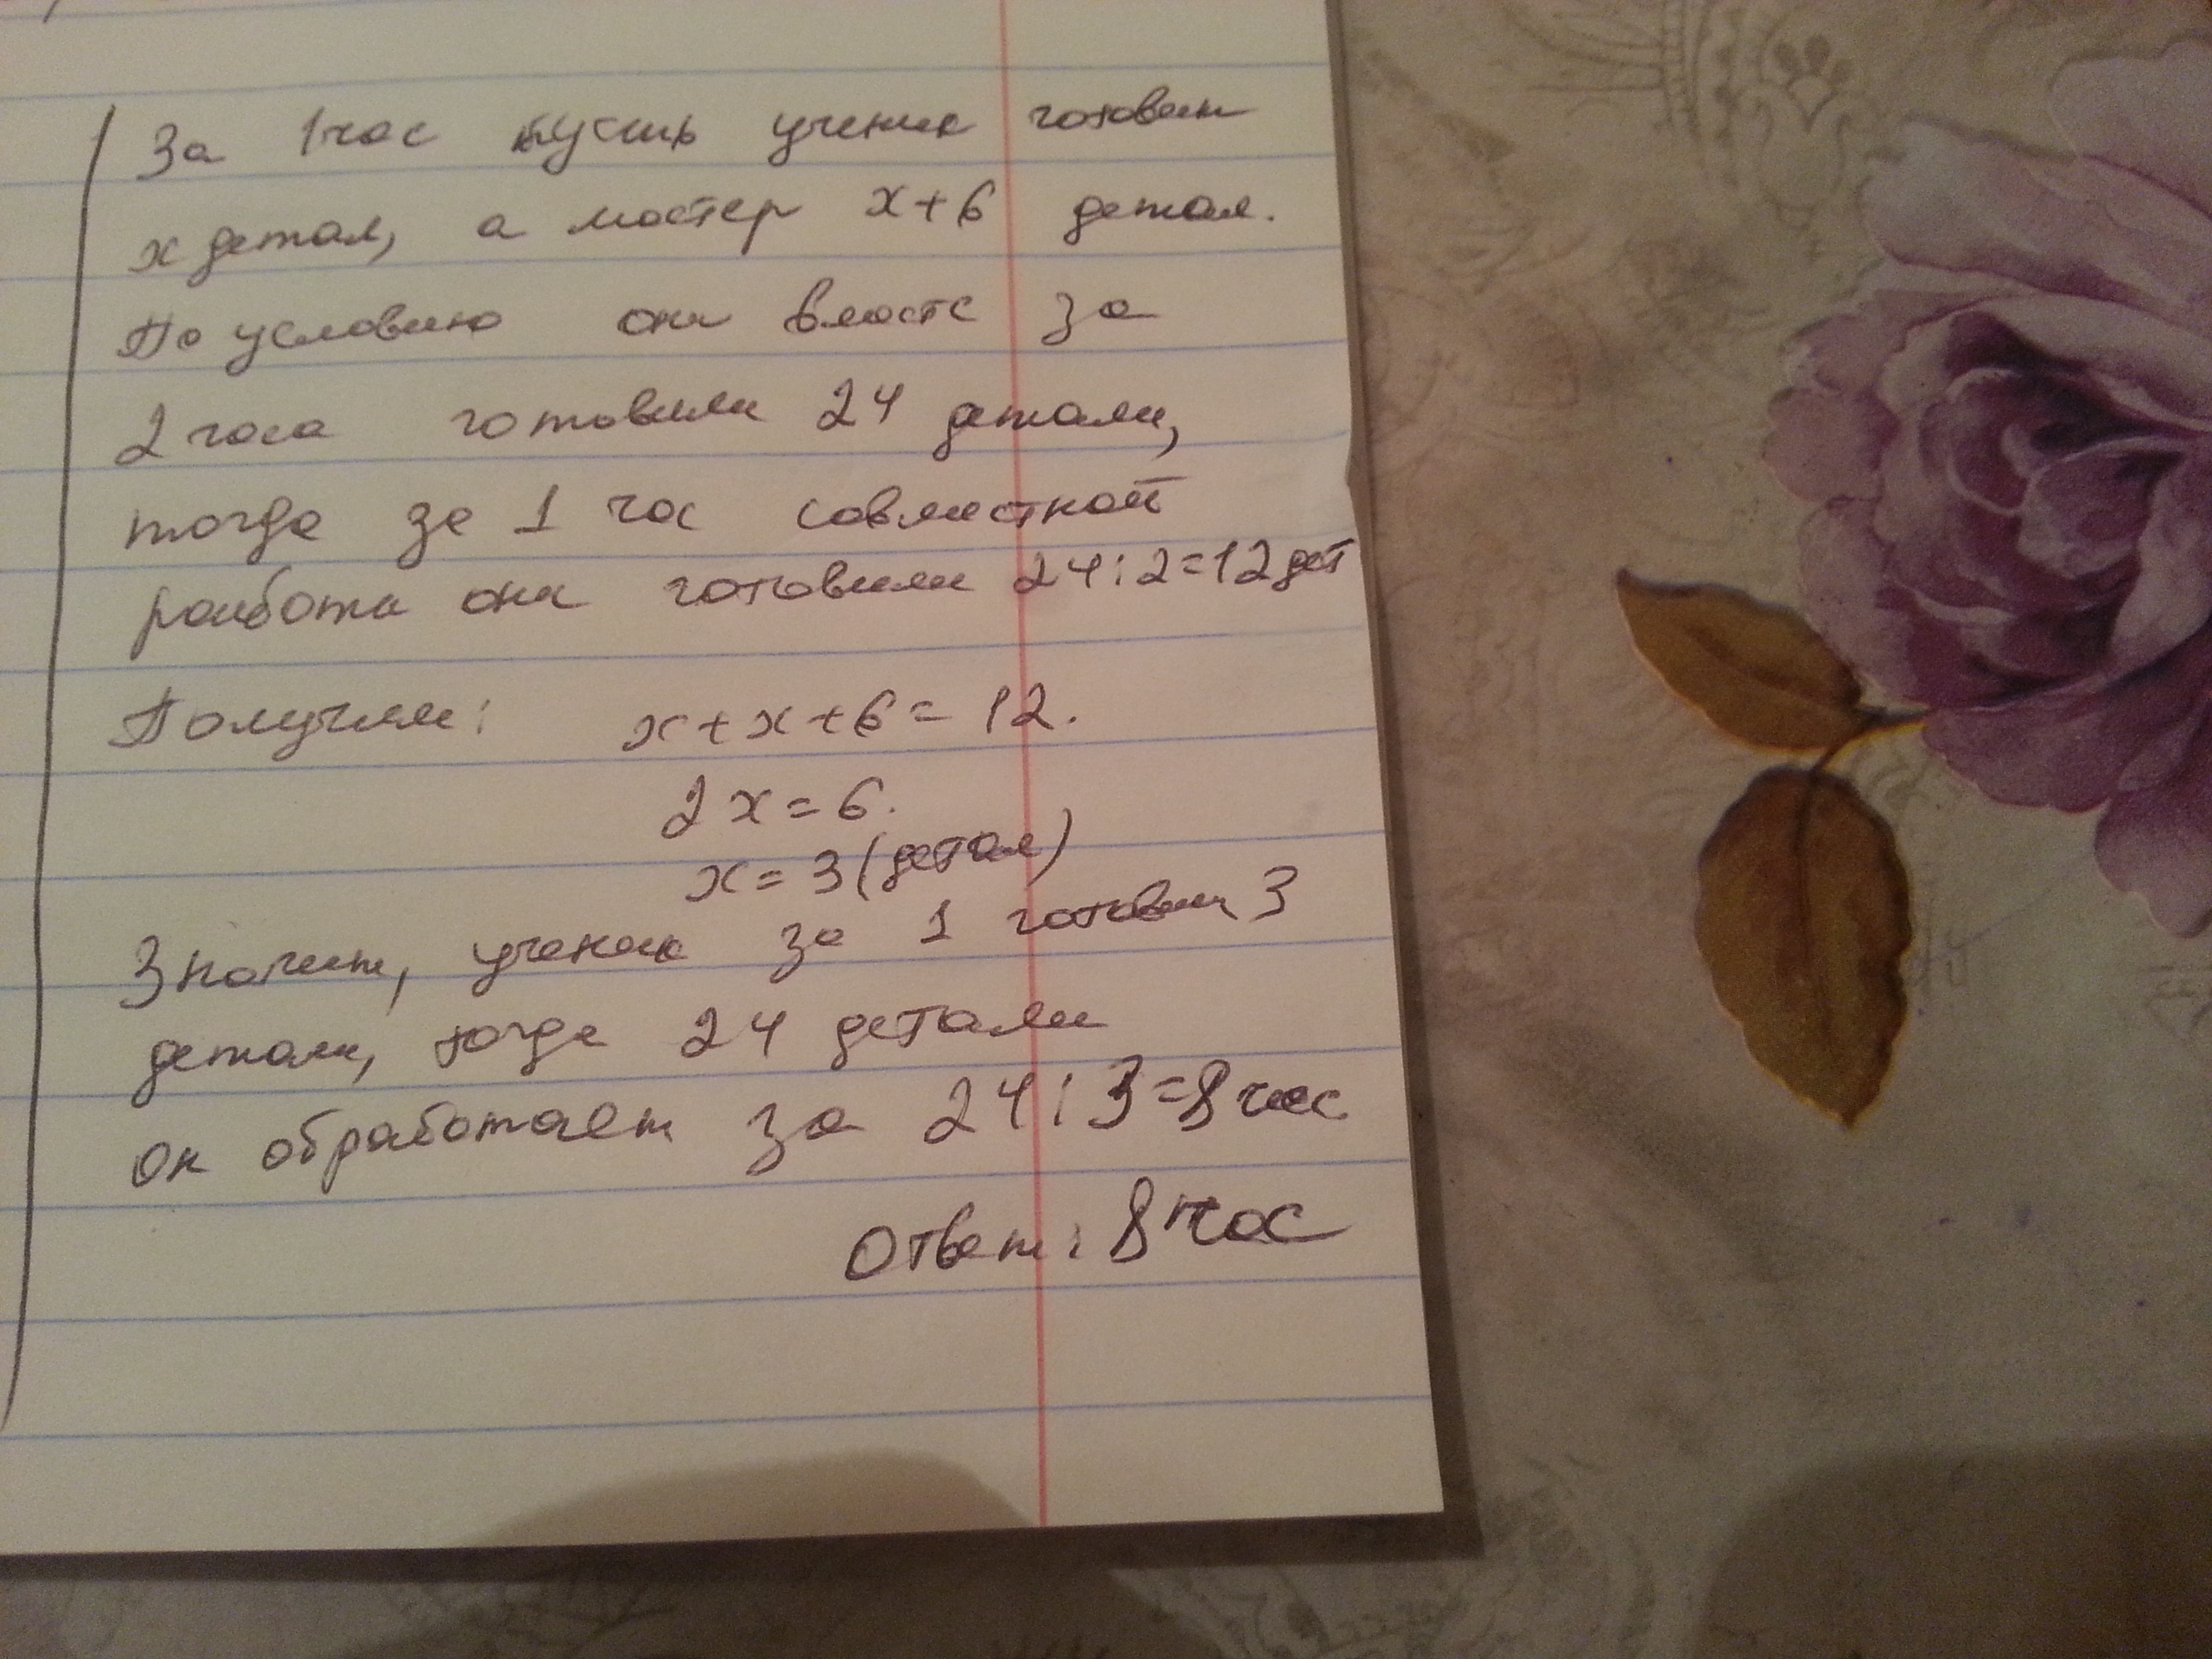 За 1 час пусть ученик готовит
x детал, а мастер x+6 детал.
По условию они вместе за
2 часа готовили 24 детали,
тогда за 1 час совместной
работы они готовили 24:2=12 дет
Получим: x+x+6=12.
2x=6.
x=3 (детал)
Значит, ученик за 1 готовит 3
детали, тогда 24 детали
он обработает за 24:3=8 час
Ответ: 8 час